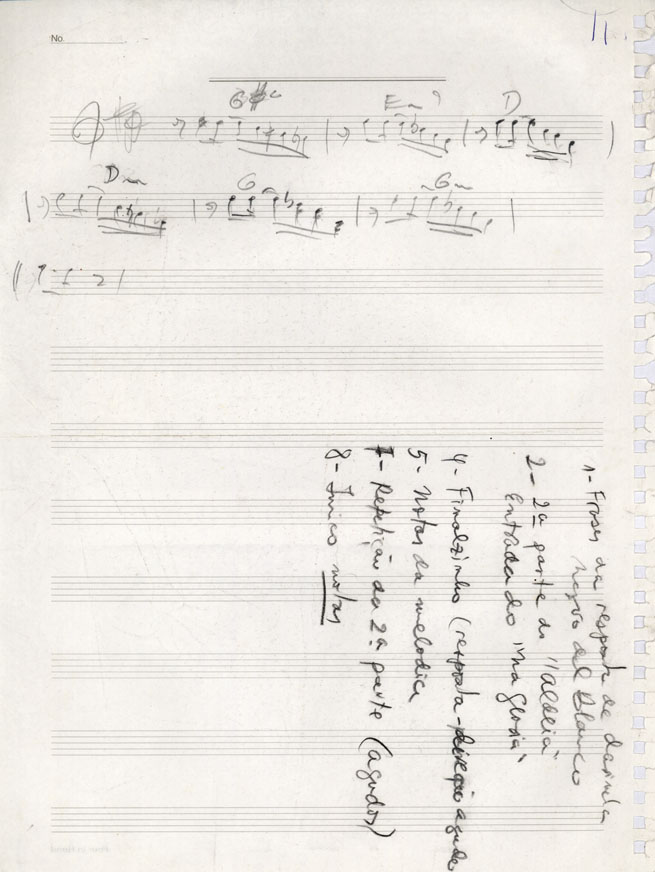 No.
11
G
Em 9 D
Dm G Gm
1- Frases da resposta de
negro del Blanco
2- 2ª parte do "Aldeia"
Entrada do "na glória"
4- Finalzinho (resposta - região aguda
5- Notas da melodica
7- Repetição da 2ª parte (agudos)
8- notas